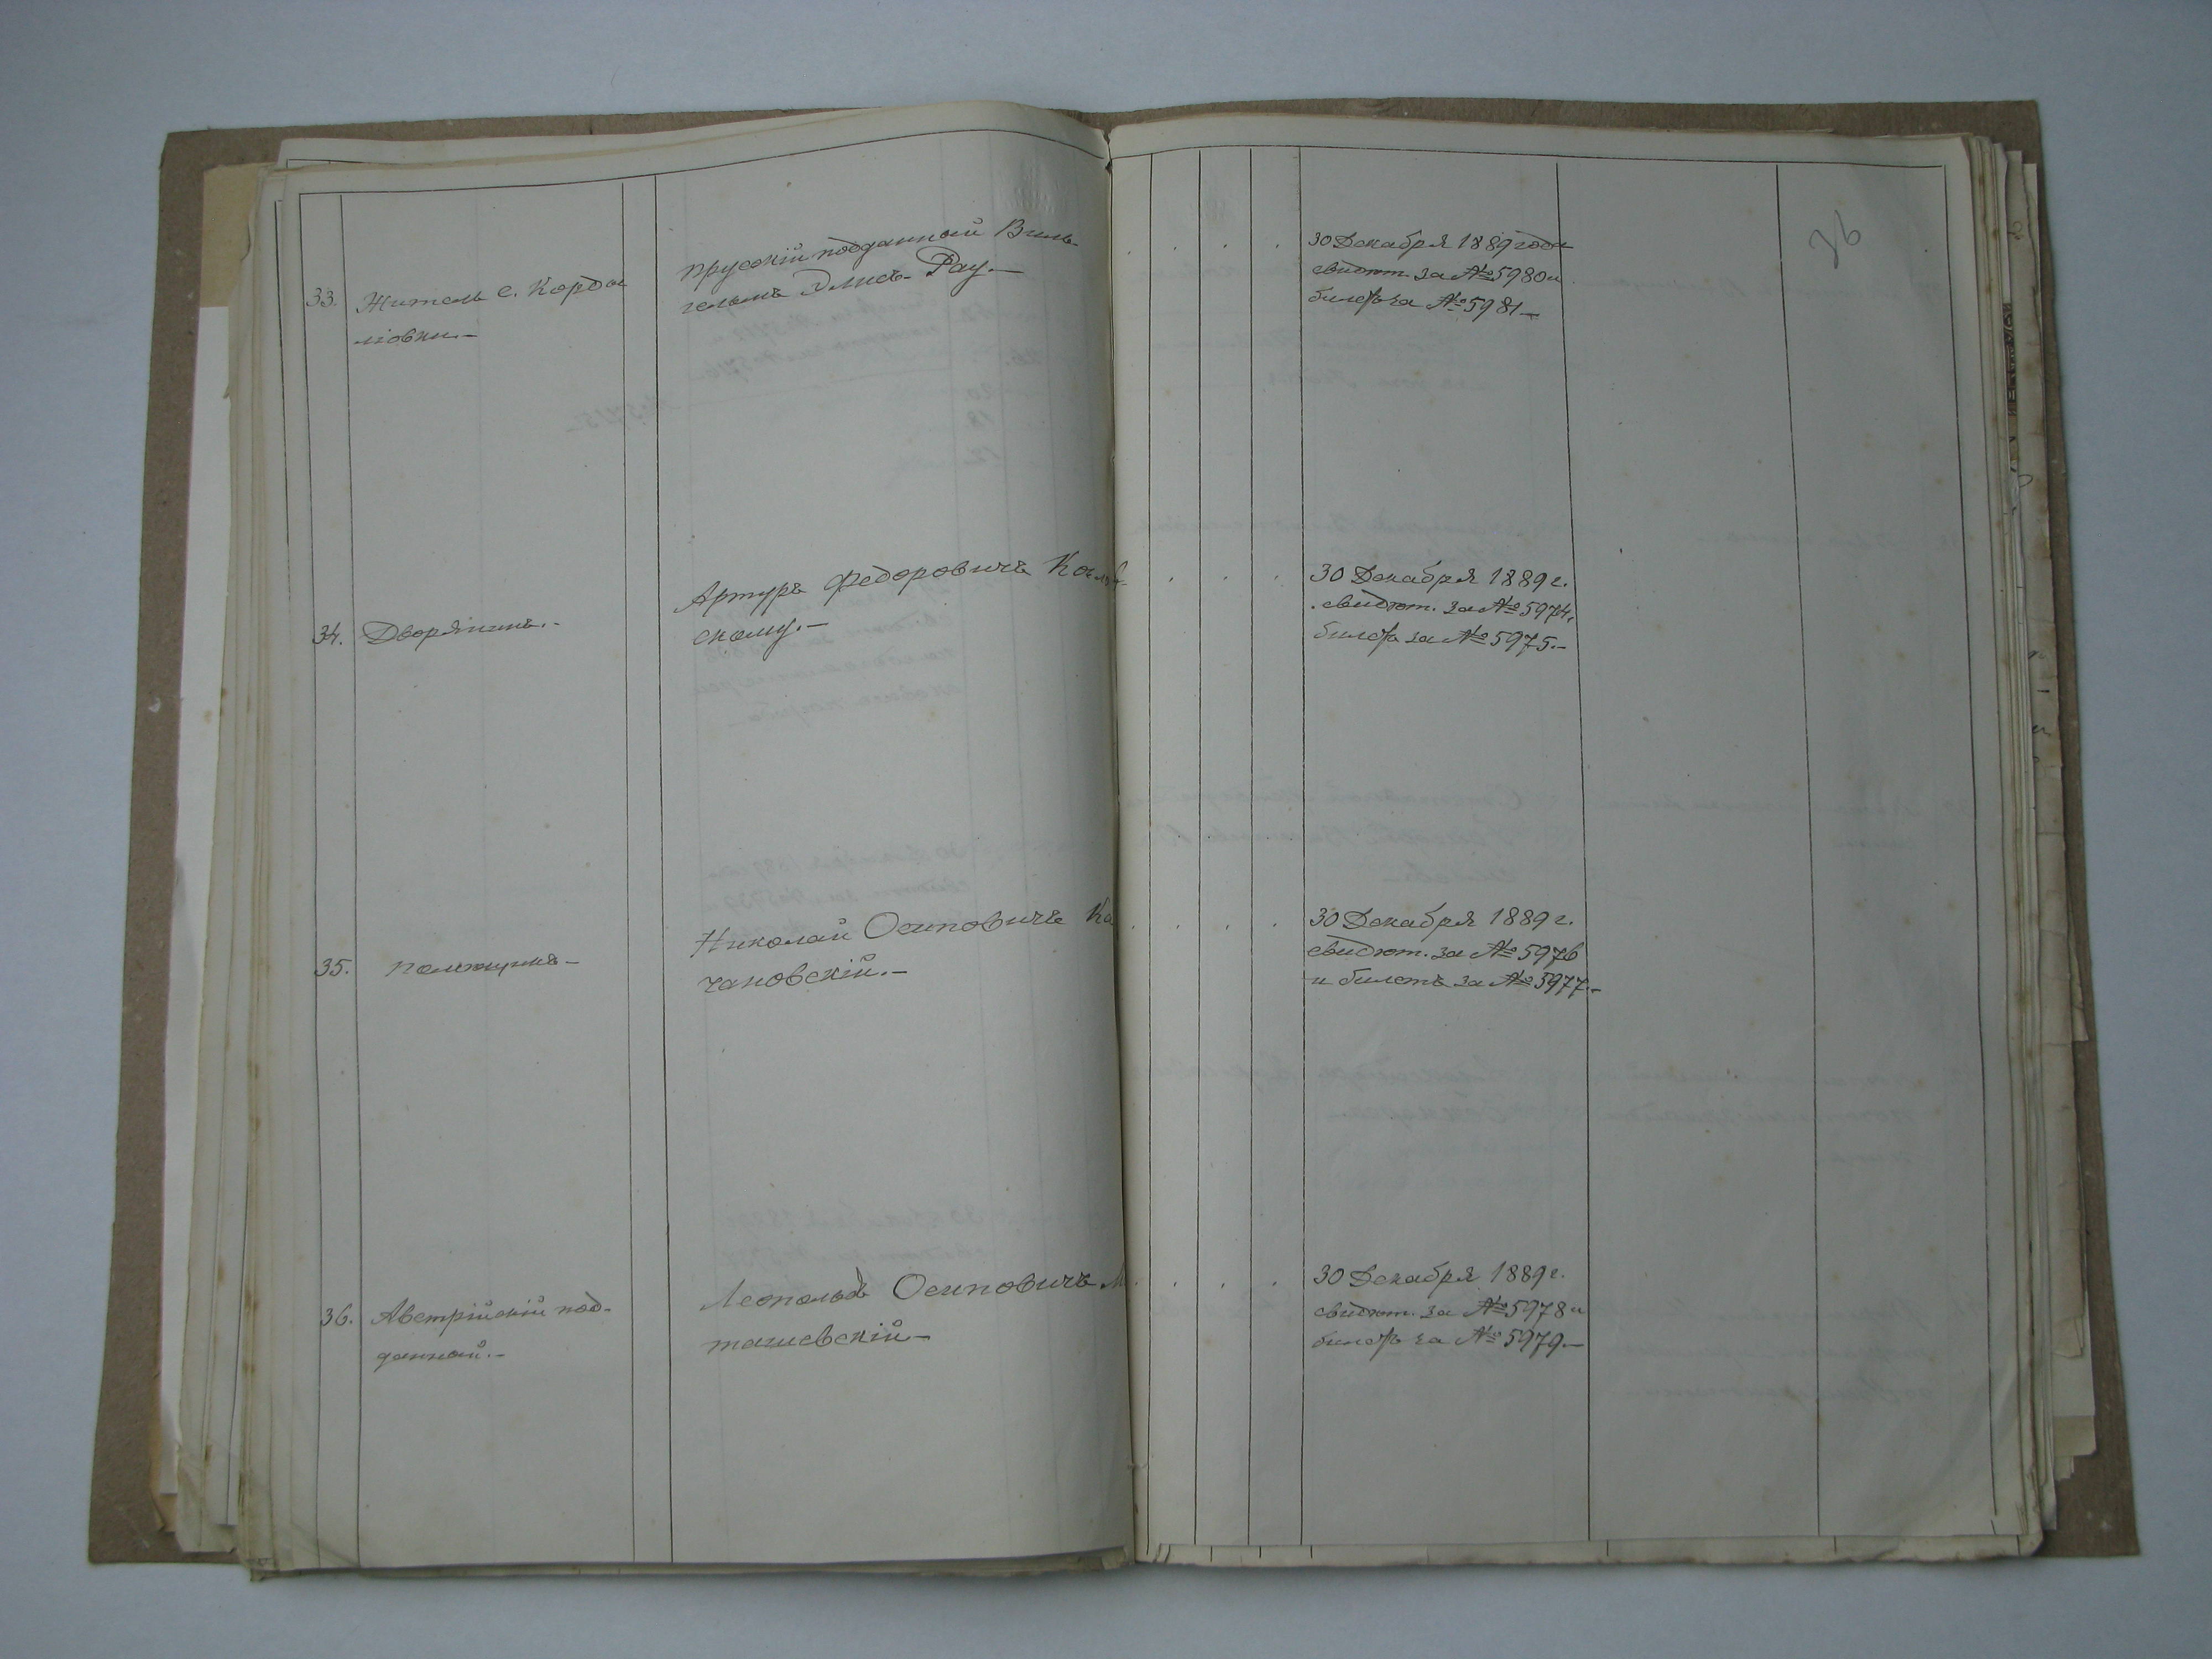 36
33. Житель с. Кордо
ловки.—
прусскій подданный Виль-
гельмъ Рау.—
30 Декабря 1889 года
свидѣт. за № 5980 и
билетъ за № 5981—
34. Дворянинъ.-
Артуръ Федоровичъ
скому.—
30 Декабря 1889 г.
свидѣт. за № 5974,
билетъ за № 5975.—
35.
Николай Осиповичъ Ка
чановскій.—
30 Декабря 1889 г.
свидѣт. за № 5976
и билетъ за № 5977.—
36. Австрійскій под-
данный.—
Леопольдъ Осиповичъ М
ташевскій—
30 Декабря 1889 г.
свидѣт. за № 5978 и
билетъ за № 5979.—